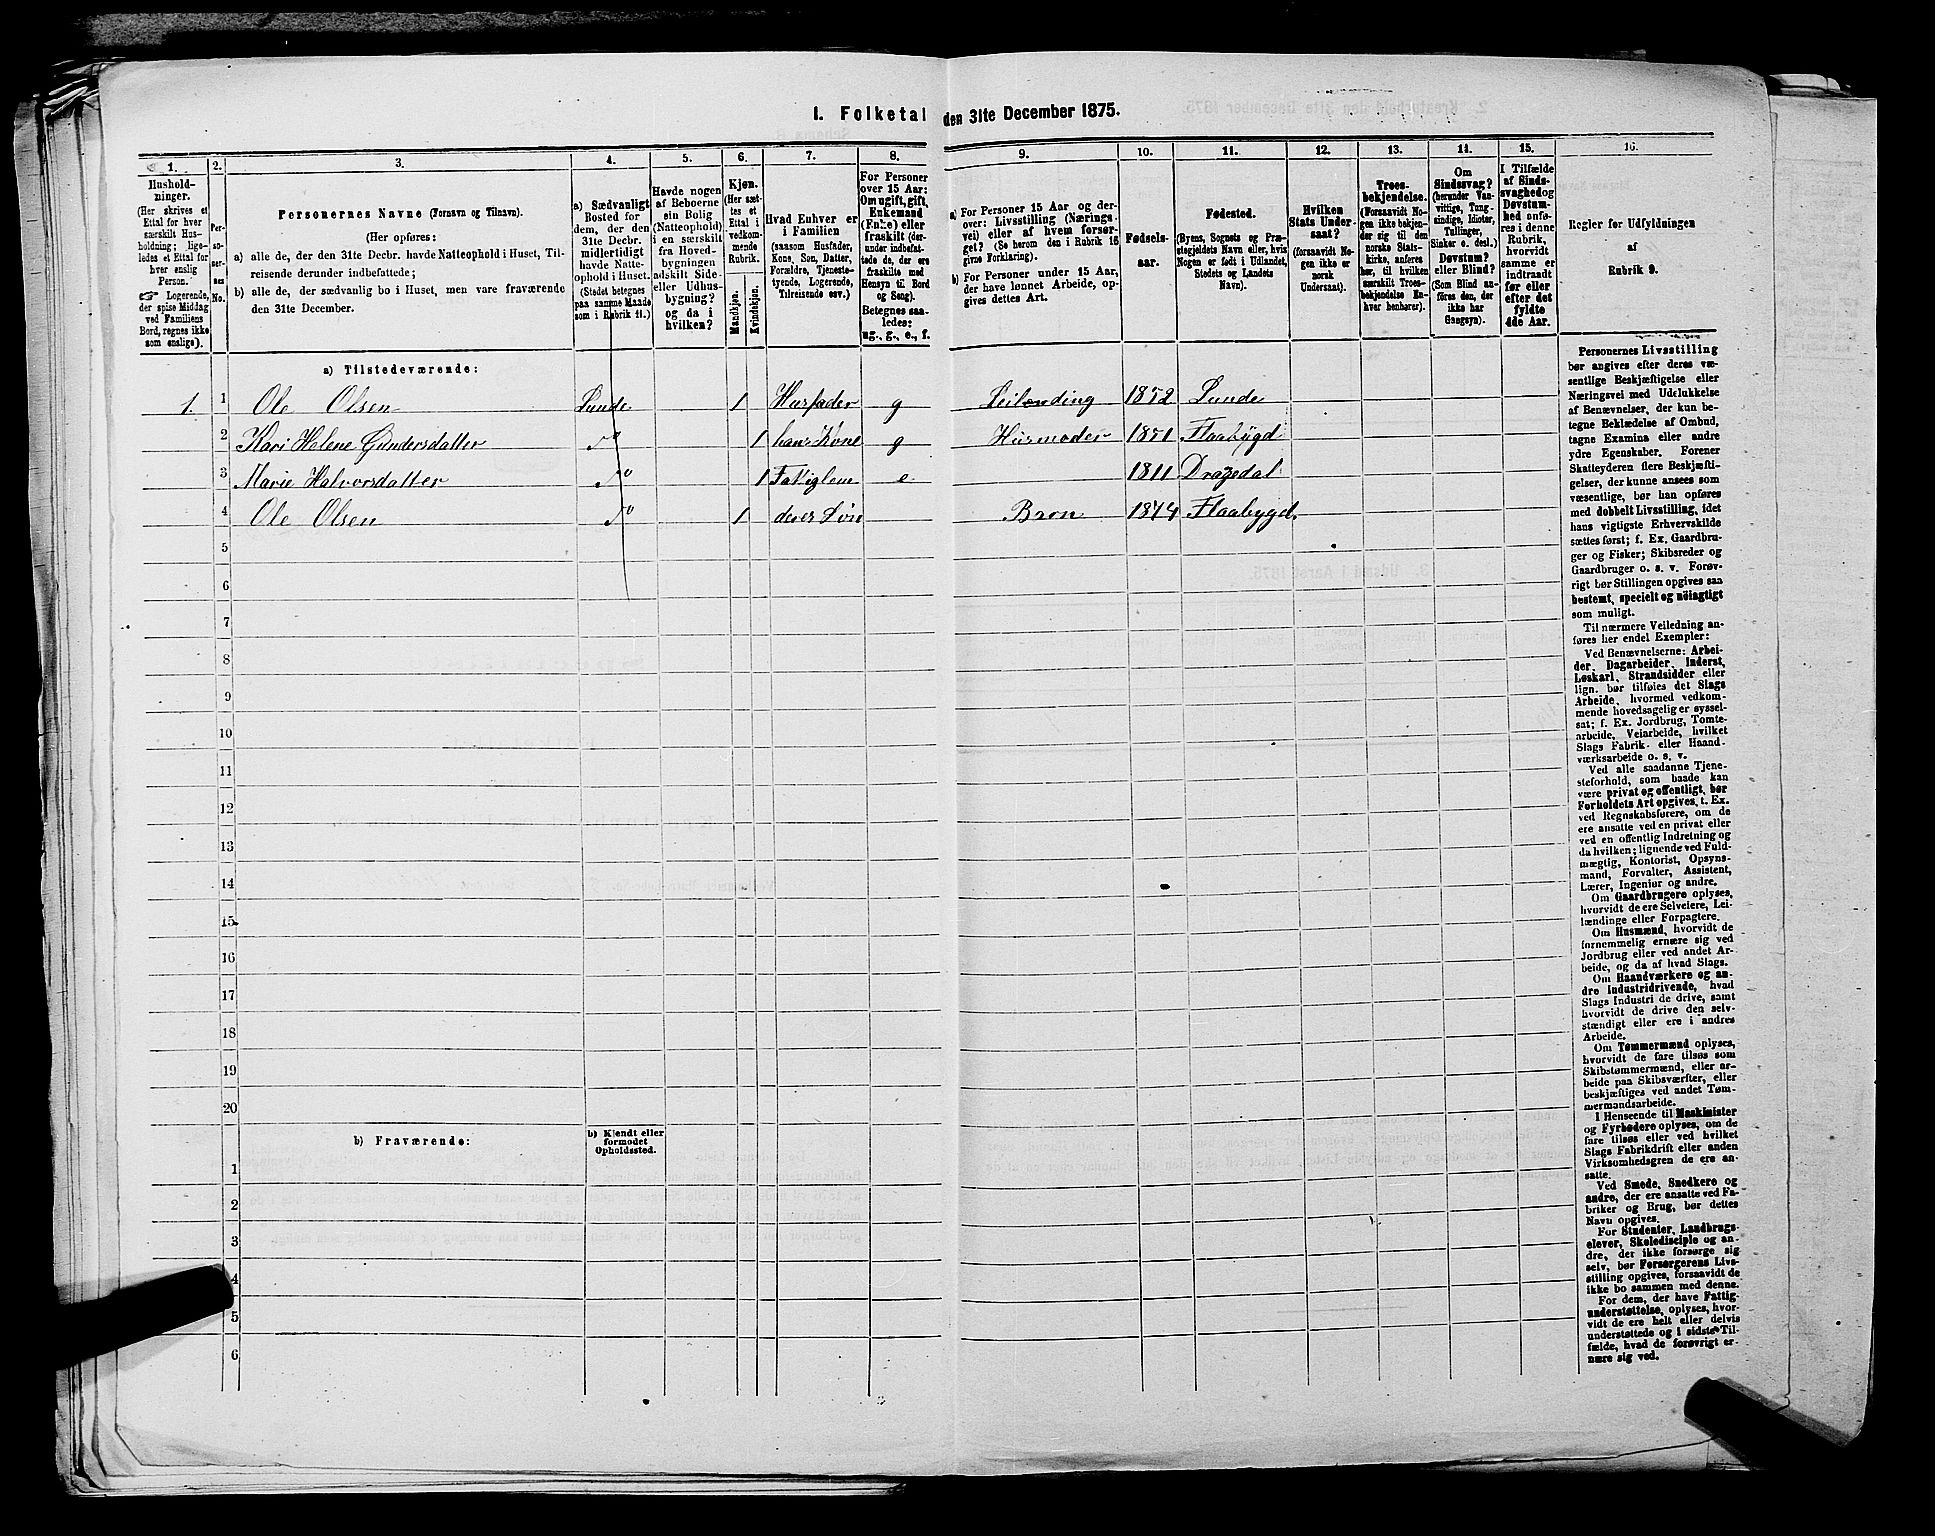 I. Folketal den 31te December 1875.
1.
Husholdninger.
(Her skrives et
Ettal for hver
særskilt Husholdning;
ligeledes et Ettal for
hver enslig
Person.
Logerende,
der spise Middag
ved Familiens
Bord, regnes ikke
som enslige).
2.
Personernes
No.
3.
Personernes Navne (Fornavn og Tilnavn).
(Her opføres:
a) alle de, der den 31te Decbr. havde Natteophold i Huset, Tilreisende derunder indbefattede;
b) alle de, der sædvanlig bo i Huset, men vare fraværende
den 31te December.
4.
a) Sædvanligt
Bosted for
dem, der den
31te Decbr.
midlertidigt
havde Natteophold i Huset.
(Stedet betegnes
paa samme Maade
som i Rubrik 11.)
5.
Havde nogen
af Beboerne
sin Bolig
(Natteophold)
i en særskilt
fra Hovedbygningen
adskilt Side-
eller Udhusbygning?
og da i
hvilken?
6.
Kjøn.
(Her sættes et
Ettal i
vedkommende
Rubrik.
Mandkjøn.
Kvindekjøn.
7.
Hvad Enhver er
i Familien
(saasom Husfader,
Kone, Søn, Datter,
Forældre, Tjenestetyende, Logerende,
Tilreisende osv.)
8.
For Personer
over 15 Aar:
Om ugift, gift,
Enkemand
(Enke) eller
fraskilt (derunder indbefattede de, der ere
fraskilte med
Hensyn til Bord
og Seng).
Betegnes saaledes:
ug., g., e., f.
9.
a) For Personer 15 Aar og derover: Livsstilling (Næringsvei) eller af hvem forsørget? (Se herom den i Rubrik 16
givne Forklaring).
b) For Personer under 15 Aar,
der have lønnet Arbeide, opgives dettes Art.
10.
Fødselsaar.
11.
Fødested.
(Byens, Sognets og Præstegjeldets Navn eller, hvis
Nogen er født i Udlandet,
Stedets og Landets
Navn).
12.
Hvilken
Stats Undersaat?
(forsaavidt Nogen ikke er
norsk
Undersaat).
13.
Troesbekjendelse.
(Forsaavidt Nogen ikke bekjender sig til den
norske Statskirke, anføres
her, til hvilken
særskilt Troesbekjendelse Enhver henhører).
14.
Om
Sindssvag?
(herunder Vanvittige, Tungsindige, Idioter,
Tullinger,
Sinker o. desl.)
Døvstum?
eller Blind?
(Som Blind anføres den, der
ikke har
Gangsyn).
15.
I Tilfælde
af Sindssvaghed og
Døvstumhed anføres i denne
Rubrik,
hvorvidt
samme er
indtraadt
før eller
efter det
fyldte
4de Aar.
16.
Regler for Udfyldningen
af
Rubrik 9.
a) Tilstedeværende:
1. 1 Ole Olsen Lunde 1 Husfader g Leilending 1852 Lunde
2 Kari Helene Gundersdatter do 1 hans Kone g Husmoder 1851 Flaabygd
3 Marie Halvorsdatter do 1 Fatiglem e 1811 Drangedal
4 Ole Olsen do 1 deres Søn 1874 Flaabygd.
5
6
7
8
9
10
11
12
13
14
15
16
17
18
19
20
b) Fraværende:
b) Kjendt eller
formodet
Opholdssted.
1
2
3
4
5
6
Personernes Livsstilling
bør angives efter deres væsentlige Beskjæftigelse eller
Næringsvei med Udelukkelse
af Benævnelser, der kun betegne Beklædelse af Ombud,
tagne Examina eller andre
ydre Egenskaber. Forener
Skatteyderen flere Beskjæftigelser, der kunne ansees som
væsentlige, bør han opføres
med dobbelt Livsstilling, idet
hans vigtigste Erhvervskilde
sættes først; f. Ex. Gaardbruger og Fisker; Skibsreder og
Gaardbruger o. s. v. Forøvrigt bør Stillingen opgives saa
bestemt, specielt og nöiagtigt
som muligt.
Til nærmere Veiledning anføres her endel Exempler:
Ved Benævnelserne: Arbeider, Dagarbeider, Inderst,
Løskarl, Strandsidder eller
lign. bør tilføies det Slags
Arbeide, hvormed vedkommende hovedsagelig er sysselsat; f. Ex. Jordbrug, Tomtearbeide, Veiarbeide, hvilket
Slags Fabrik- eller Haandværksarbeide o. s. v.
Ved alle saadanne Tjenesteforhold, som baade kan
være privat og offentligt, bør
Forholdets Art opgives, t. Ex.
ved Regnskabsførere, om de
ere ansatte ved en privat eller
ved en offentlig Indretning og
da hvilken; lignende ved Fuldmægtig, Kontorist, Opsynsmand, Forvalter, Assistent,
Lærer, Ingeniør og andre.
Om Gaardbrugere oplyses,
hvorvidt de ere Selveiere, Leilændinge eller Forpagtere.
Om Husmænd, hvorvidt de
fornemmelig ernære sig ved
Jordbrug eller ved andet Arbeide, og da af hvad Slags.
Om Haandværkere og andre Industridrivende, hvad
Slags Industri de drive, samt
hvorvidt de drive den selvstændigt eller ere i andres
Arbeide.
Om Tømmermænd oplyses,
hvorvidt de fare tilsøs som
Skibstømmermænd, eller arbeide paa Skibsværfter, eller
beskjæftiges ved andet Tømmermandsarbeide.
I Henseende til Maskinister
og Fyrbødere oplyses, om de
fare tilsøs eller ved hvilket
Slags Fabrikdrift eller anden
Virksomhedsgren de ere ansatte.
Ved Smede, Snedkere og
andre, der ere ansatte ved Fabriker og Brug, bør dettes
Navn opgives.
For Studenter, Landbrugselever, Skoledisciple og andre, der ikke forsørge sig
selv, bør Forsørgerens Livsstilling opgives, forsaavidt de
ikke bo sammen med denne.
For dem, der have Fattigunderstøttelse, oplyses, hvorvidt de ere helt eller delvis
understøttede og i sidste Tilfælde, hvad de forøvrigt ernære sig ved.